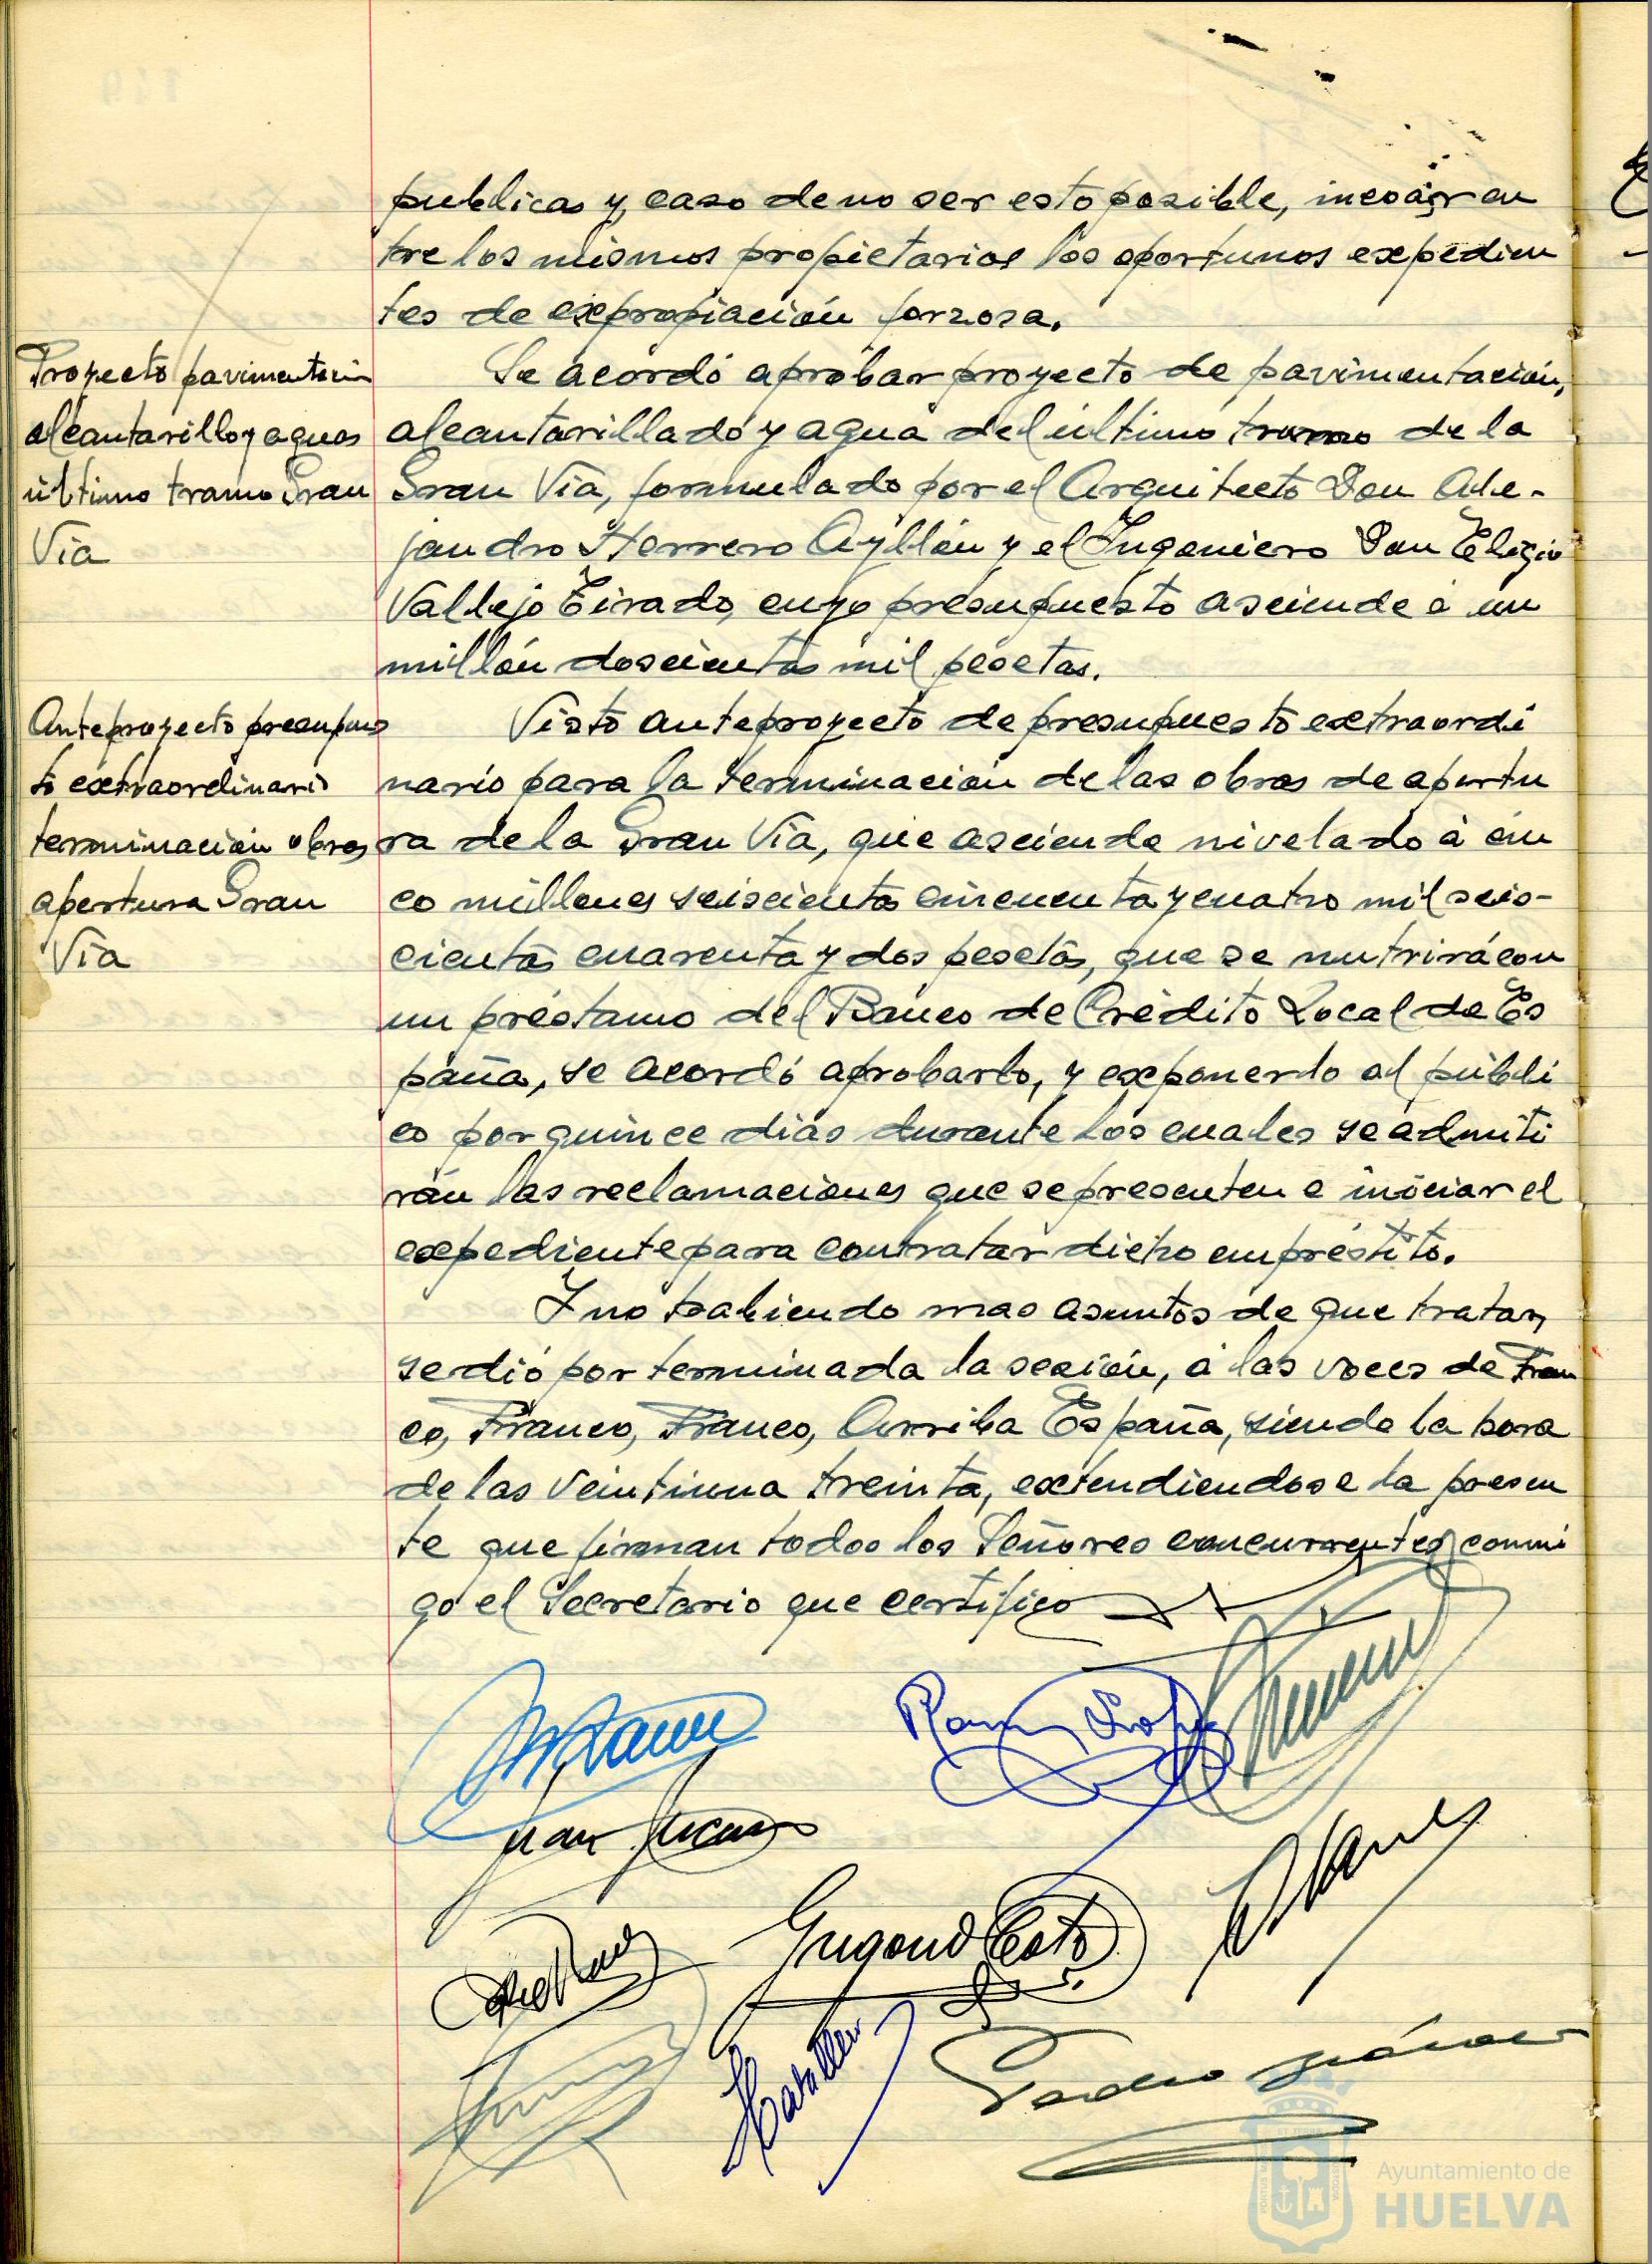 publicas y, caso de no ser esto posible, incoar en
tre los mismos propietarios los oportunos expedien
tes de expropiación forzosa.
Proyecto pavimentación
alcantarillo y aguas
último tramo Gran
Vía
Se acordó aprobar proyecto de pavimentación,
alcantarillado y agua del último tramo de la
Gran Vía, formulado por el Arquitecto Don Ale-
jandro Herrero Ayllón y el Ingeniero Don Eligio
Vallejo Tirado, cuyo presupuesto asciende a un
millón doscientas mil pesetas.
Anteproyecto presupues
to extraordinario
terminación obras
apertura Gran
Vía
Visto anteproyecto de presupuesto extraordi
nario para la terminación de las obras de apertu
ra de la Gran Vía, que asciende nivelado a cin
co millones seiscientas cincuenta y cuatro mil seis-
cientas cuarenta y dos pesetas, que se nutrirá con
un préstamo del Banco de Crédito Local de Es
paña, se acordó aprobarlo, y exponerlo al públi
co por quince días durante los cuales se admiti
rán las reclamaciones que se presenten e iniciar el
expediente para contratar dicho empréstito.
Y no habiendo mas asuntos de que tratar,
se dió por terminada la sesión, a las voces de Fran
co, Franco, Franco, Arriba España, siendo la hora
de las veintiuna treinta, extendiendose la presen
te que firman todos los Señores concurrentes conmi
go el Secretario que certifico
Ayuntamiento de
HUELVA